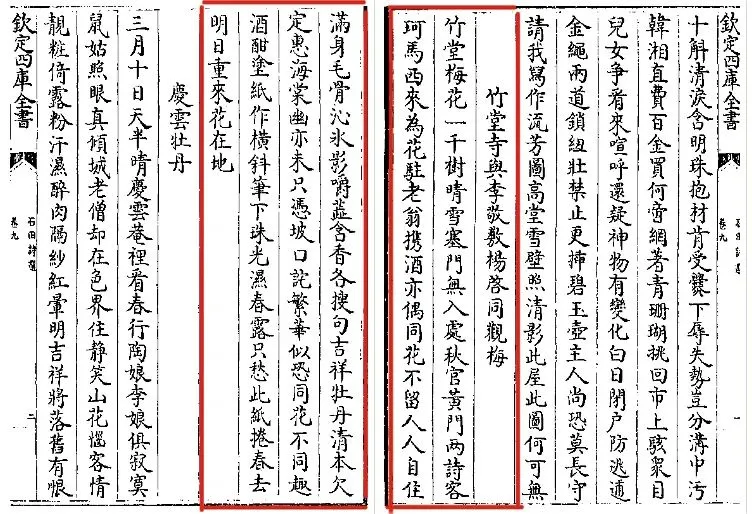 欽定四庫全書
卷九
十斛清淚含明珠抱材肯受爨下辱失勢豈分溝中汚
韓湘直費百金買何啻網著青珊瑚挑回市上駭眾目
兒女争看來喧呼還疑神物有變化白日閉户防逃逋
金繩兩道鎖紐壯禁止更揷碧玉壺主人尚恐莫長守
請我寫作流芳圖高堂雪壁照清影此屋此圖何可無
竹堂寺與李敬敷楊啓同觀梅
竹堂梅花一千樹晴雪塞門無入處秋官黄門兩詩客
珂馬西來為花駐老翁携酒亦偶同花不留人人自住
滿身毛骨沁氷影嚼蘂含香各搜句吉祥牡丹清本欠
定惠海棠幽亦未只憑坡口詫繁華似恐同花不同趣
酒酣塗紙作橫斜筆下珠光濕春露只愁此紙捲春去
明日重來花在地
慶雲牡丹
三月十日天半晴慶雲菴裡看春行陶娘李娘俱寂寞
鼠姑照眼真傾城老僧却在色界住靜笑山花惱客情
靚粧倚露粉汗濕醉肉隔紗紅暈明吉祥將落舊有恨
欽定四庫全書
石田詩選
卷九
二